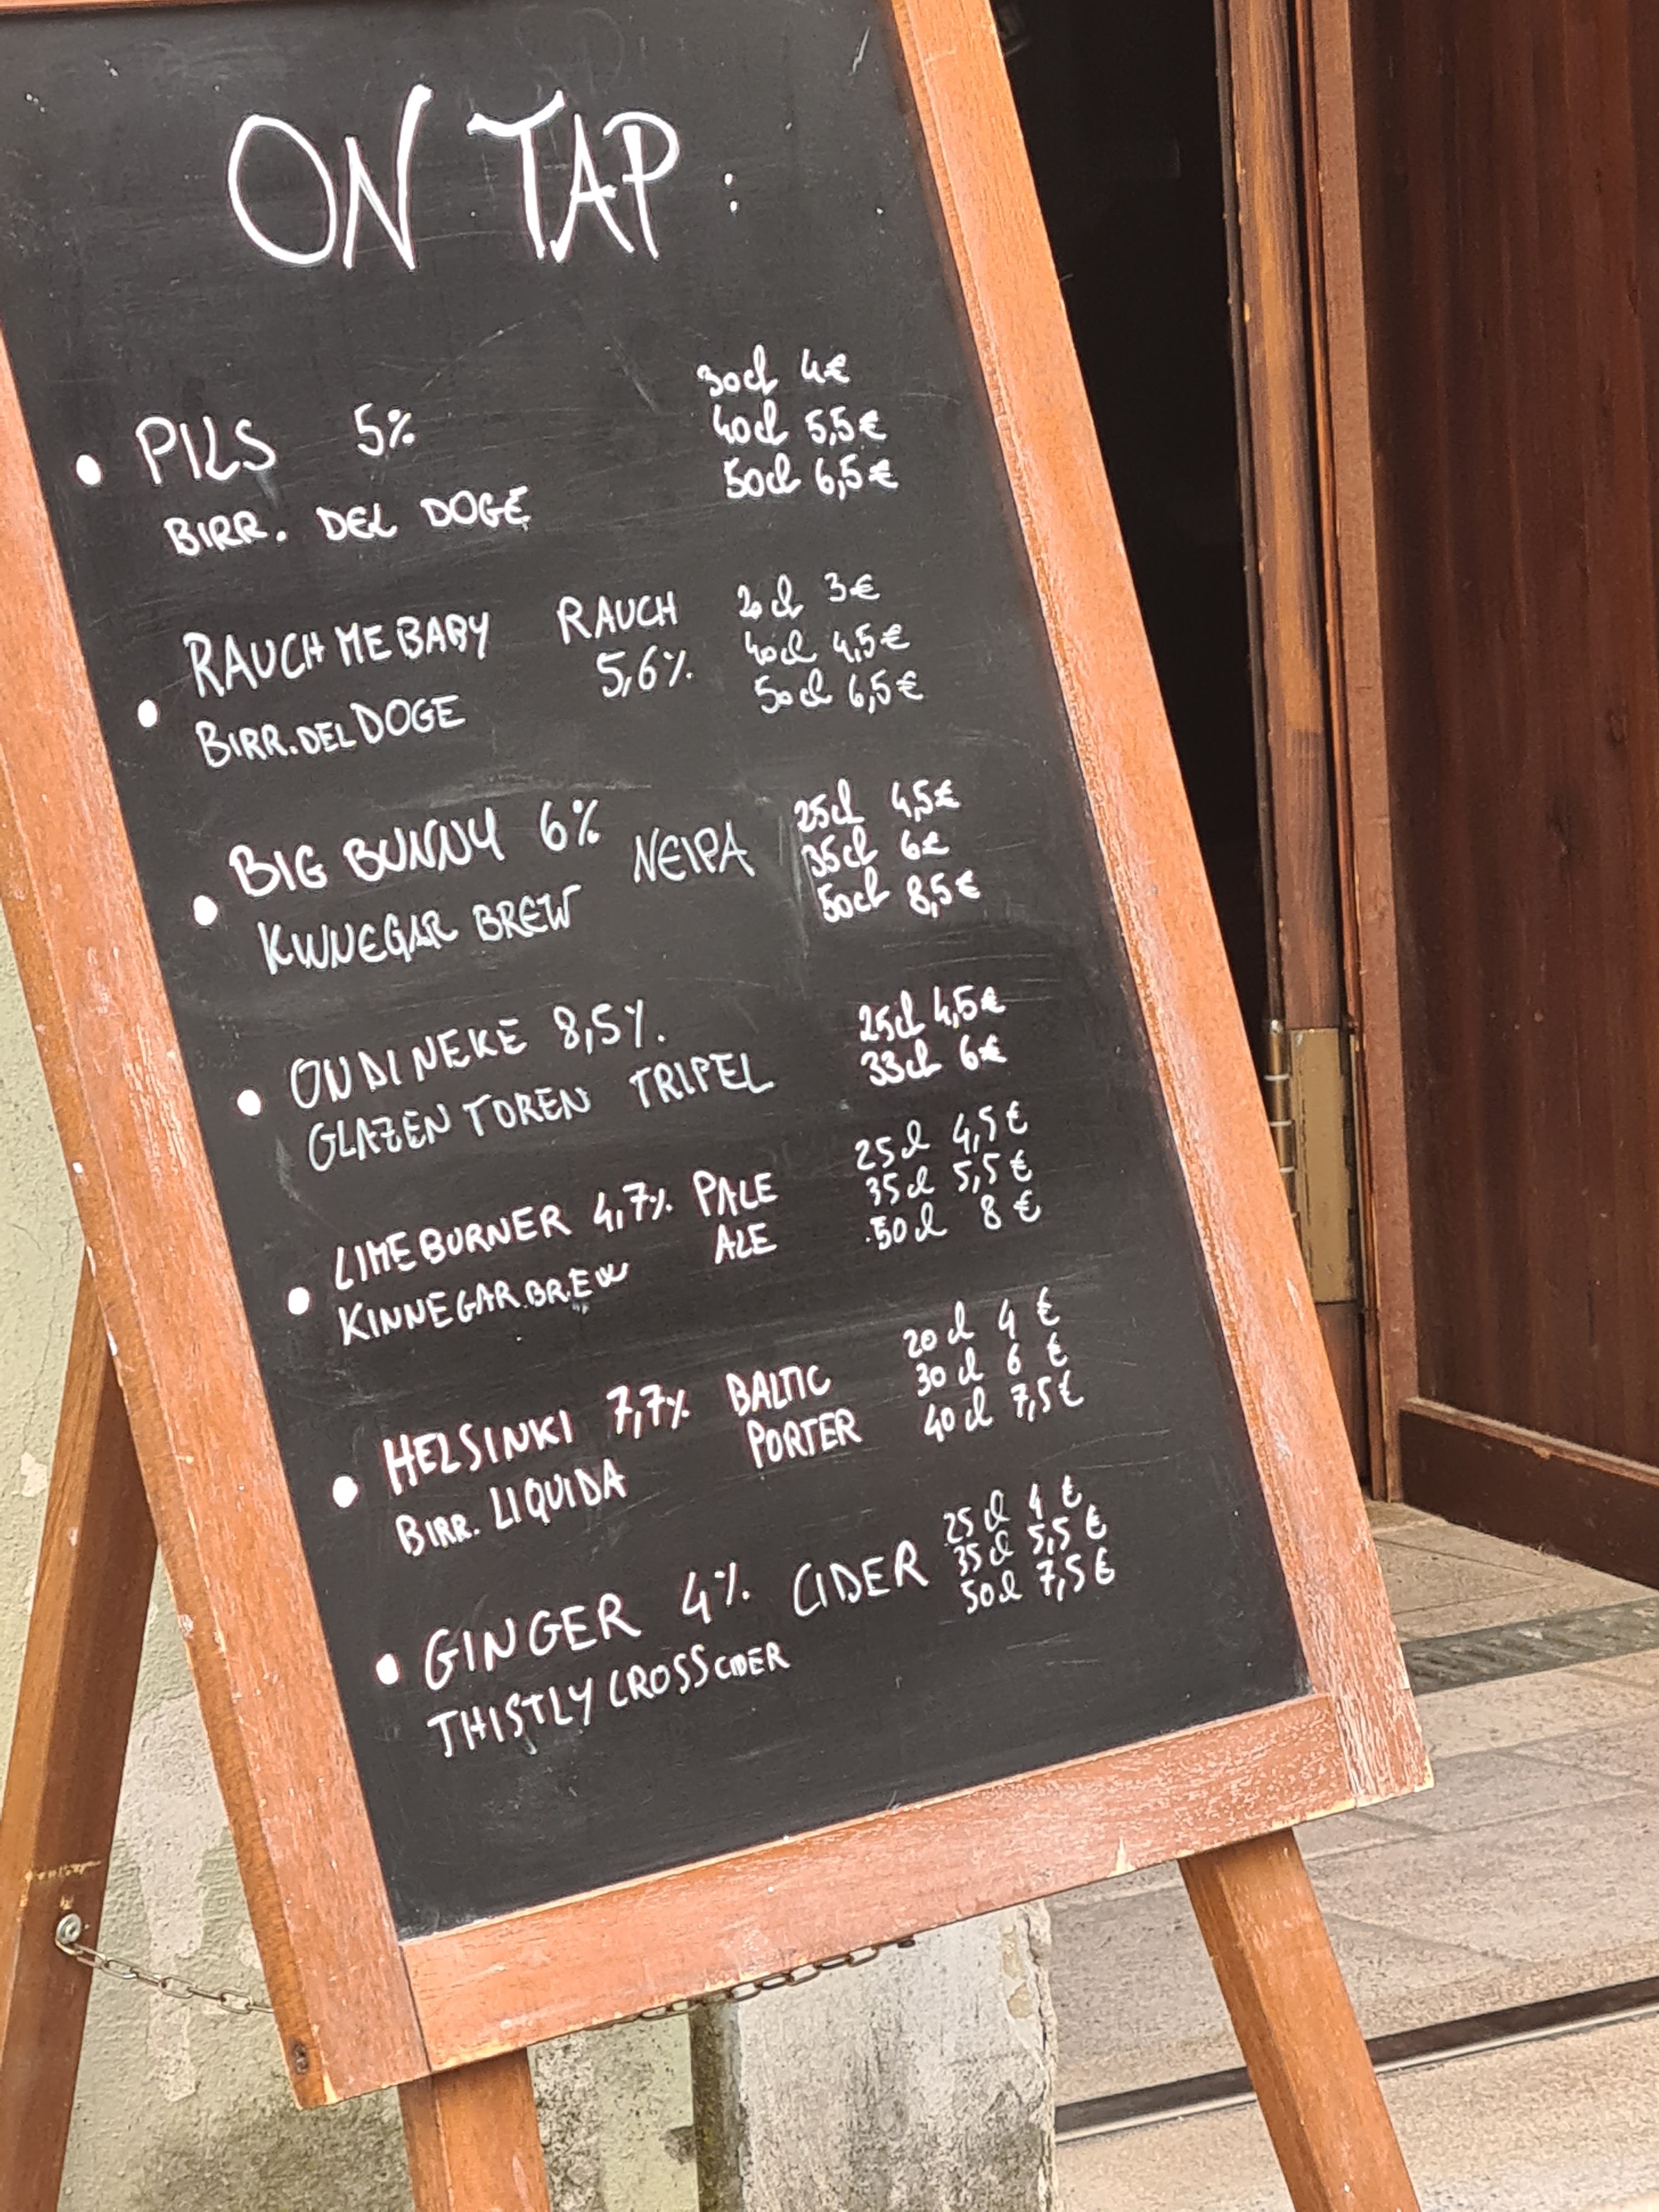 ON TAP :
• PILS 5%
BIRR. DEL DOGE
30cl 4€
40cl 5,5€
50cl 6,5€
• RAUCH ME BABY RAUCH
BIRR. DEL DOGE 5,6%
20cl 3€
40cl 4,5€
50cl 6,5€
• BIG BUNNY 6% NEIPA
KINNEGAR BREW
25cl 4,5€
35cl 6€
50cl 8,5€
• OUD INEKE 8,5%
GLAZEN TOREN TRIPEL
25cl 4,5€
33cl 6€
• LIMEBURNER 4,7% PALE
KINNEGAR.BREW ALE
25cl 4,5€
35cl 5,5€
50cl 8€
• HELSINKI 7,7% BALTIC
BIRR. LIQUIDA PORTER
20cl 4€
30cl 6€
40cl 7,5€
• GINGER 4% CIDER
THISTLY CROSS CIDER
25cl 4€
35cl 5,5€
50cl 7,5€